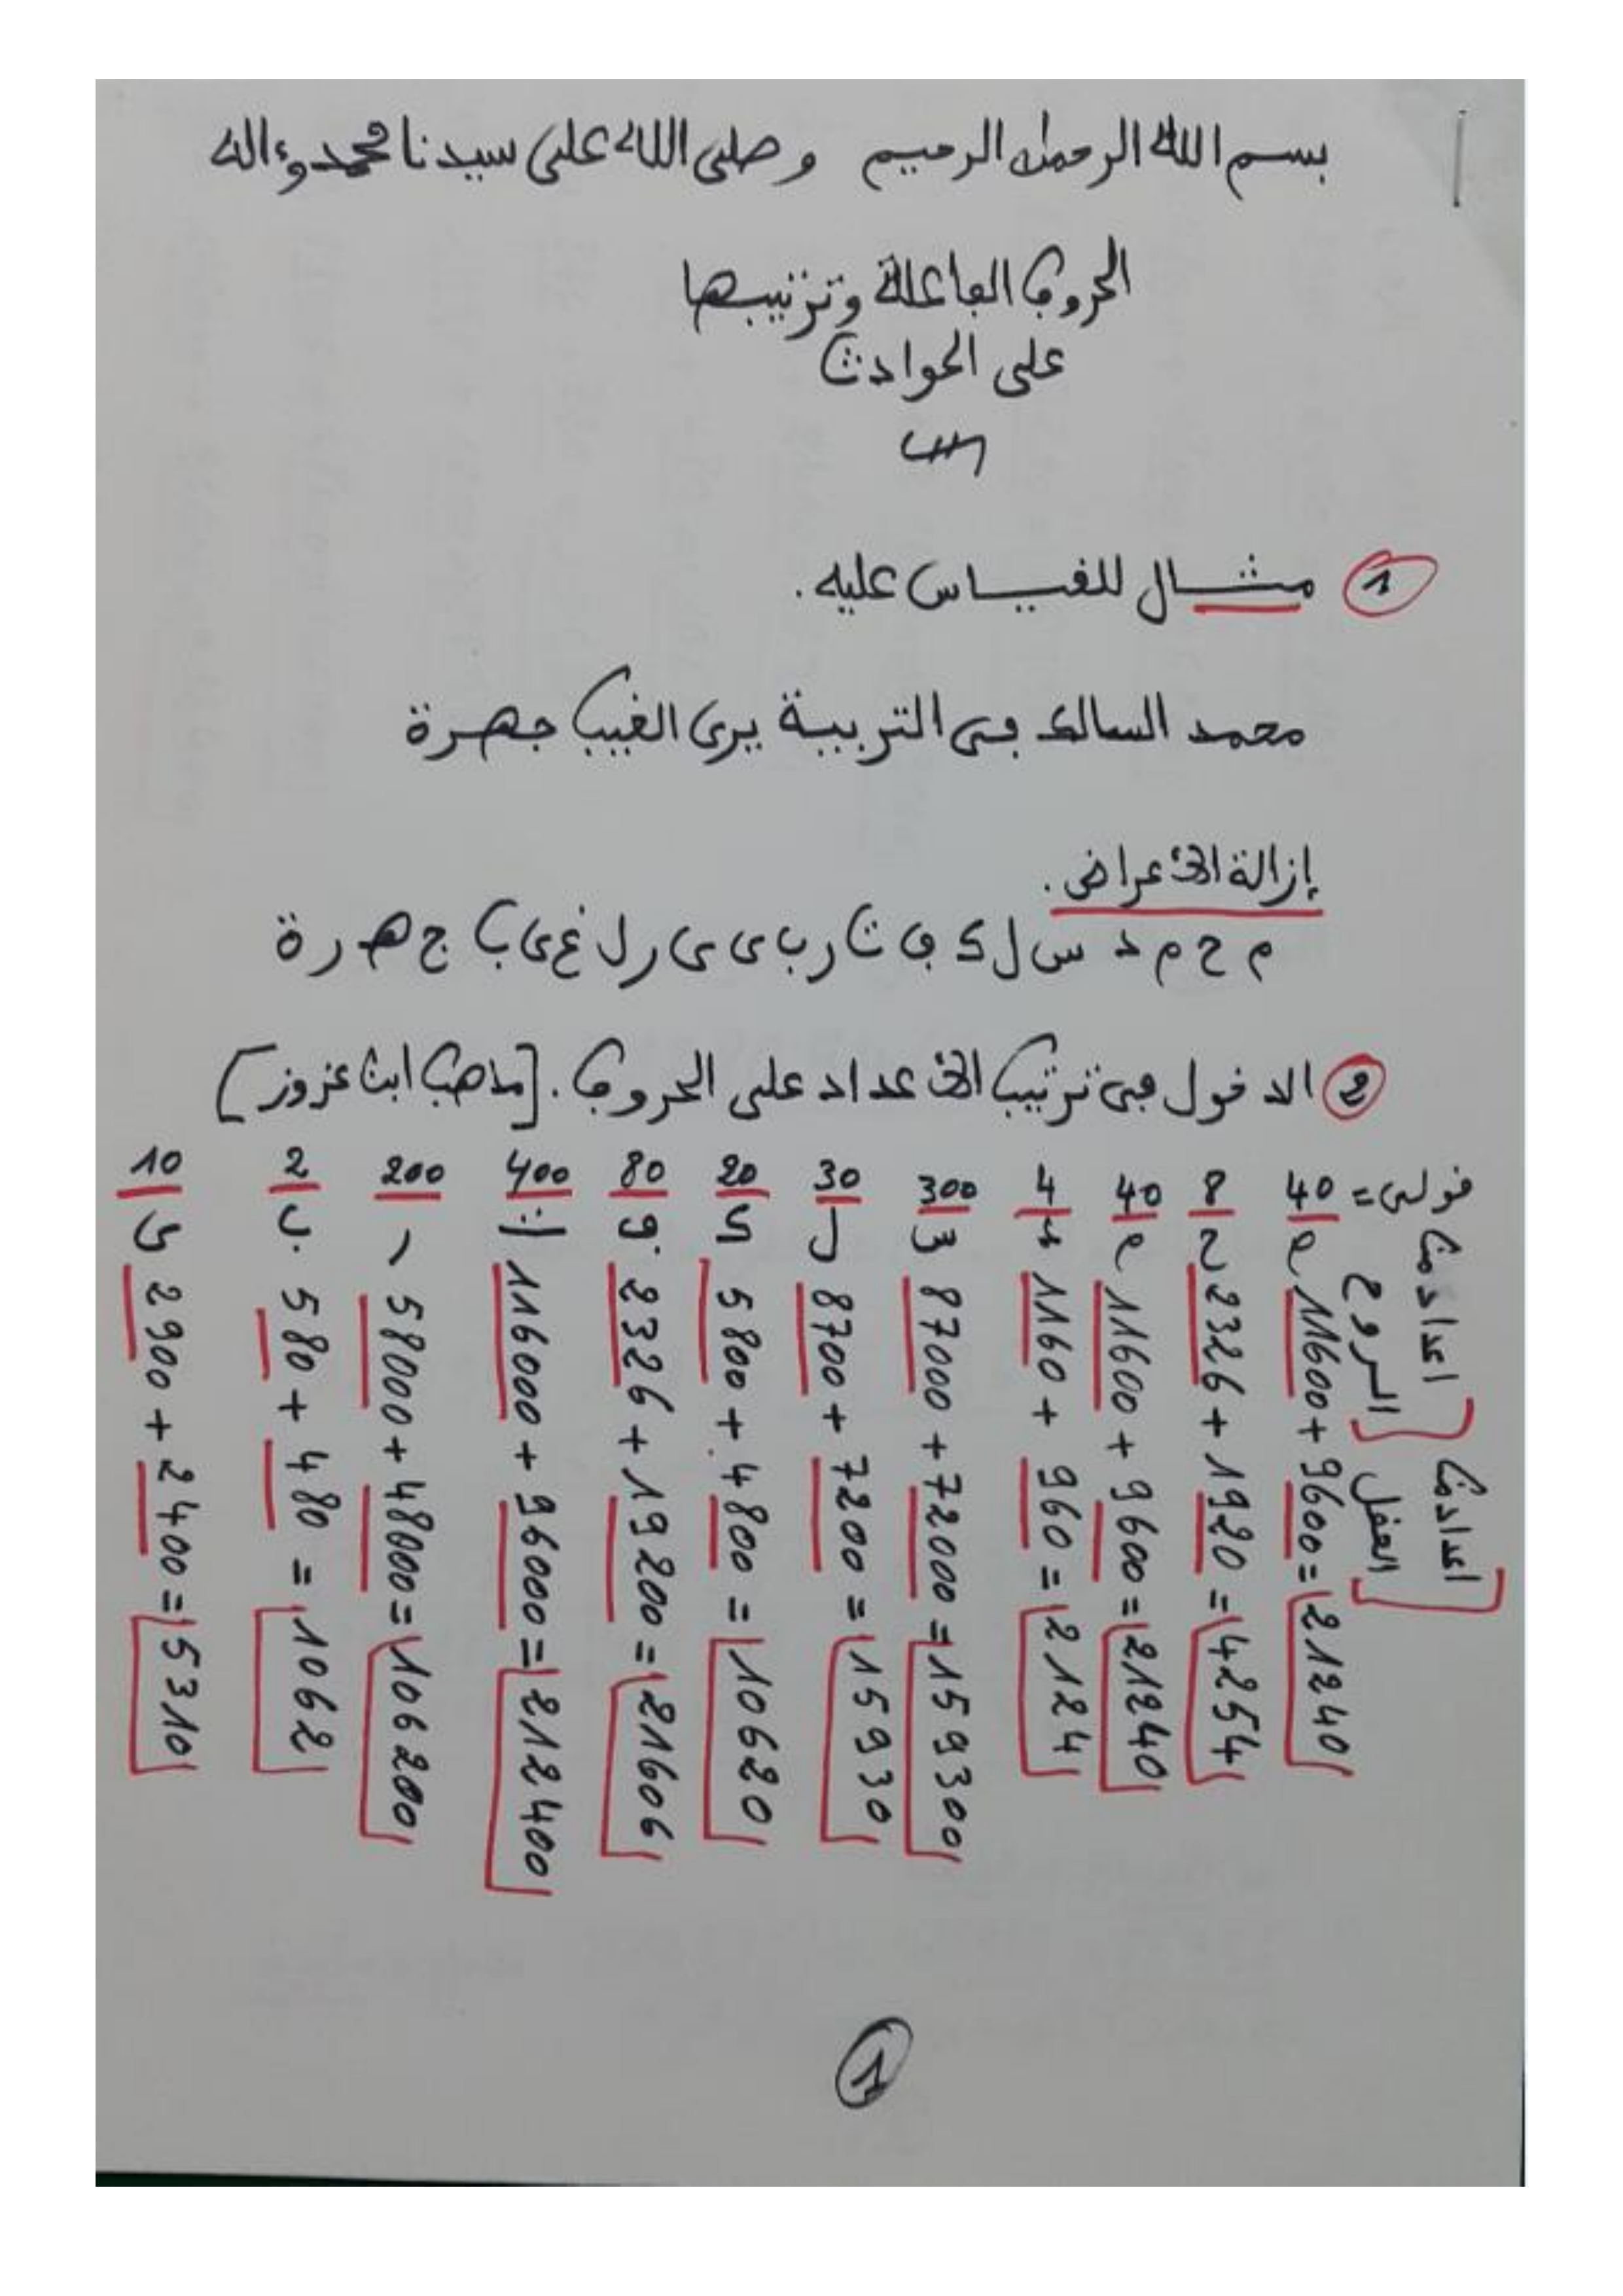 بسم الله الرحمن الرحيم وصلى الله على سيدنا محمد وءاله
الحروف الفاعلة وترتيبها
على الحوادث
① مثال للقياس عليه.
محمد السالك في التربية يرى الغيب جهرة
إزالة الأعراض.
م ح م د س ل ك ف ت ر ب ي ي ر ل غ ي ب ج ه ر ة
② الدخول في ترتيب الأعداد على الحروف. [مذهب ابن عزوز]
قولي =
اعداد من الروح
اعداد من العقل
40 م 11600 + 9600 = 21240
8 ح 2326 + 1920 = 4254
40 م 11600 + 9600 = 21240
4 د 1160 + 960 = 2124
300 س 87000 + 72000 = 159300
30 ل 8700 + 7200 = 15930
20 ك 5800 + 4800 = 10620
80 ف 2326 + 19200 = 21606
400 ت 116000 + 96000 = 212400
200 ر 58000 + 48000 = 106200
2 ب 580 + 480 = 1062
10 ي 2900 + 2400 = 5310
1